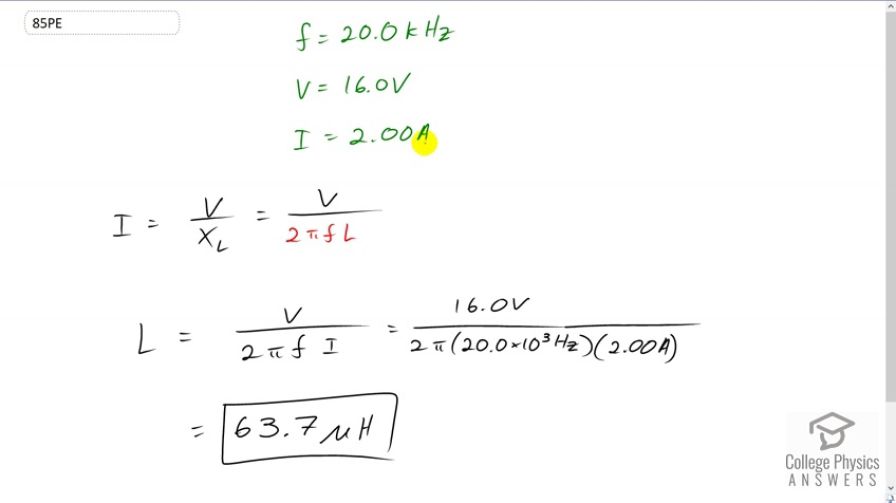 85PE
f = 20.0 kHz
V = 16.0V
I = 2.00A
I = V/X_L = V/2πfL
L = V/2πf I = 16.0V/2π(20.0×10³Hz)(2.00A)
= 63.7 μH
College Physics
ANSWERS